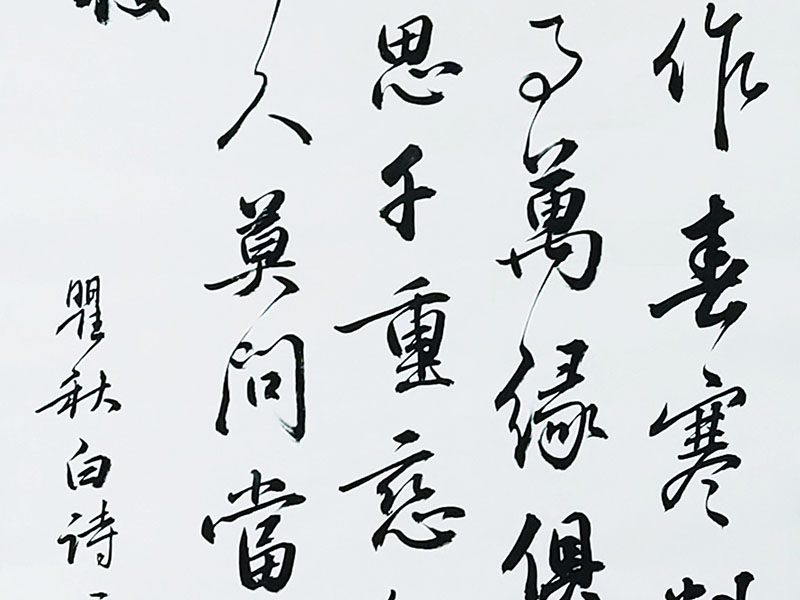 作春寒料
事萬緣俱
思千重戀
人莫問當
瞿秋白詩